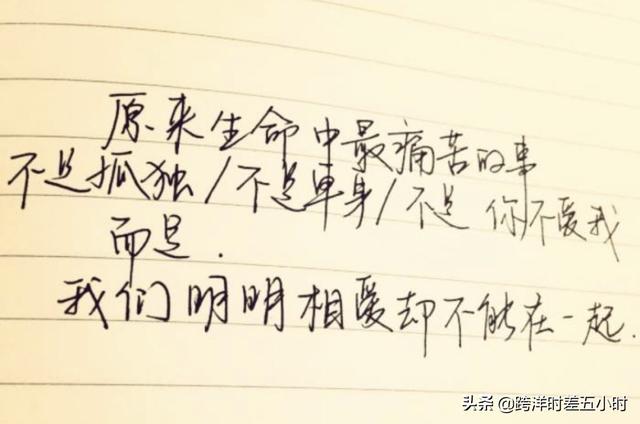 原来生命中最痛苦的事
不是孤独/不是单身/不是 你不爱我
而是.
我们明明相爱却不能在一起.
头条 @跨洋时差五小时